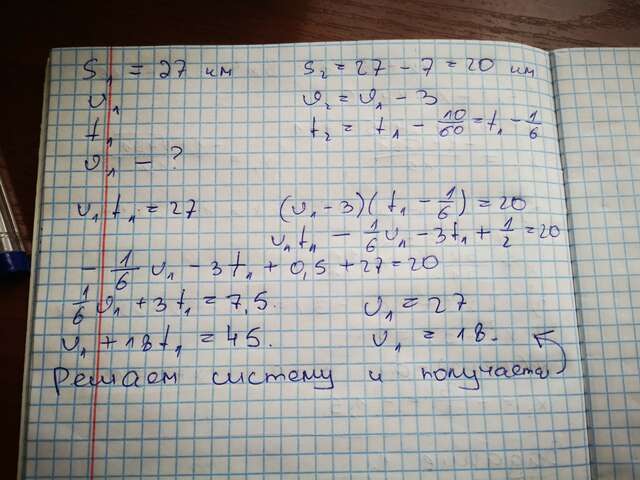 S₁ = 27 км S₂ = 27 - 7 = 20 км
υ₁ υ₂ = υ₁ - 3
t₁ t₂ = t₁ - 10/60 = t₁ - 1/6
υ₁ - ?
υ₁ t₁ = 27 (υ₁ - 3)(t₁ - 1/6) = 20
υ₁t₁ - 1/6 υ₁ - 3t₁ + 1/2 = 20
- 1/6 υ₁ - 3t₁ + 0,5 + 27 = 20
1/6 υ₁ + 3t₁ = 7,5. υ₁ = 27
υ₁ + 18t₁ = 45. υ₁ = 18.
Решаем систему и получаем